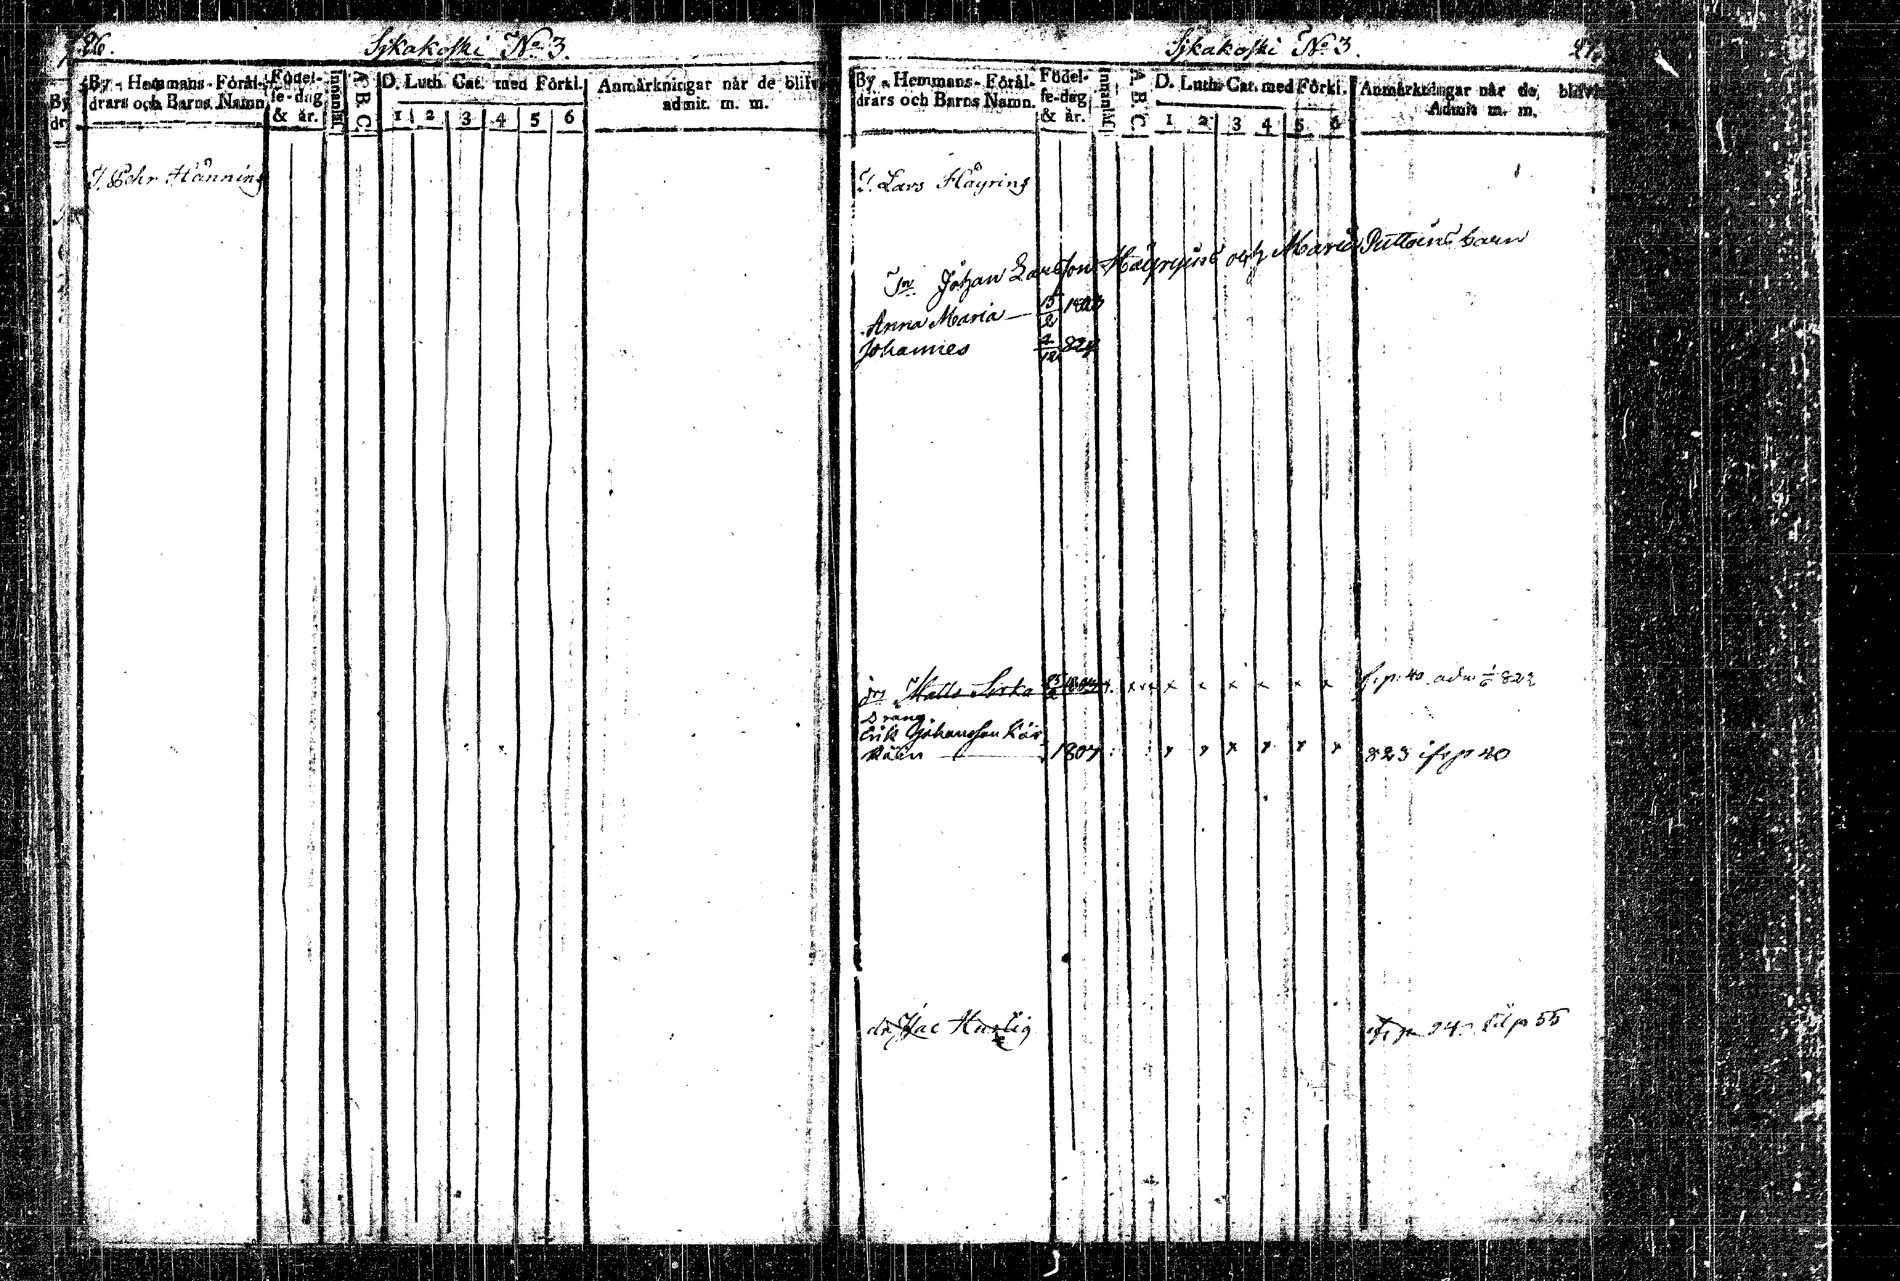 26.
Sjkakoski No 3.
By - Hemmans - Föräl-
drars och Barns Namn.
Födel-
se-dag
& år.
Innanläs
A. B. C.
D. Luth. Cat. med Förkl.
1 2 3 4 5 6
Anmärkningar når de blifv
admit. m. m.
T. Pehr Hänning
Sjkakoski No 3.
27.
By - Hemmans - Föräl-
drars och Barns Namn.
Födel-
se-dag
& år.
Innanläs
A. B. C.
D. Luth. Cat. med Förkl.
1 2 3 4 5 6
Anmärkningar når de blifvit
Admit m. m.
T. Lars Häyring
Johan Larsson Häyryins och Maria Puttoins barn
Anna Maria — 15/2 1823
Johannes 2/12 824
Matts Sirka x x x x x x x x x p. 40 adm 822
Dräng
Erik Johansson Kär-
käin 1807 x x x x x x 823 ifr p 40
dr. Isac Hurtig 24 till p 55